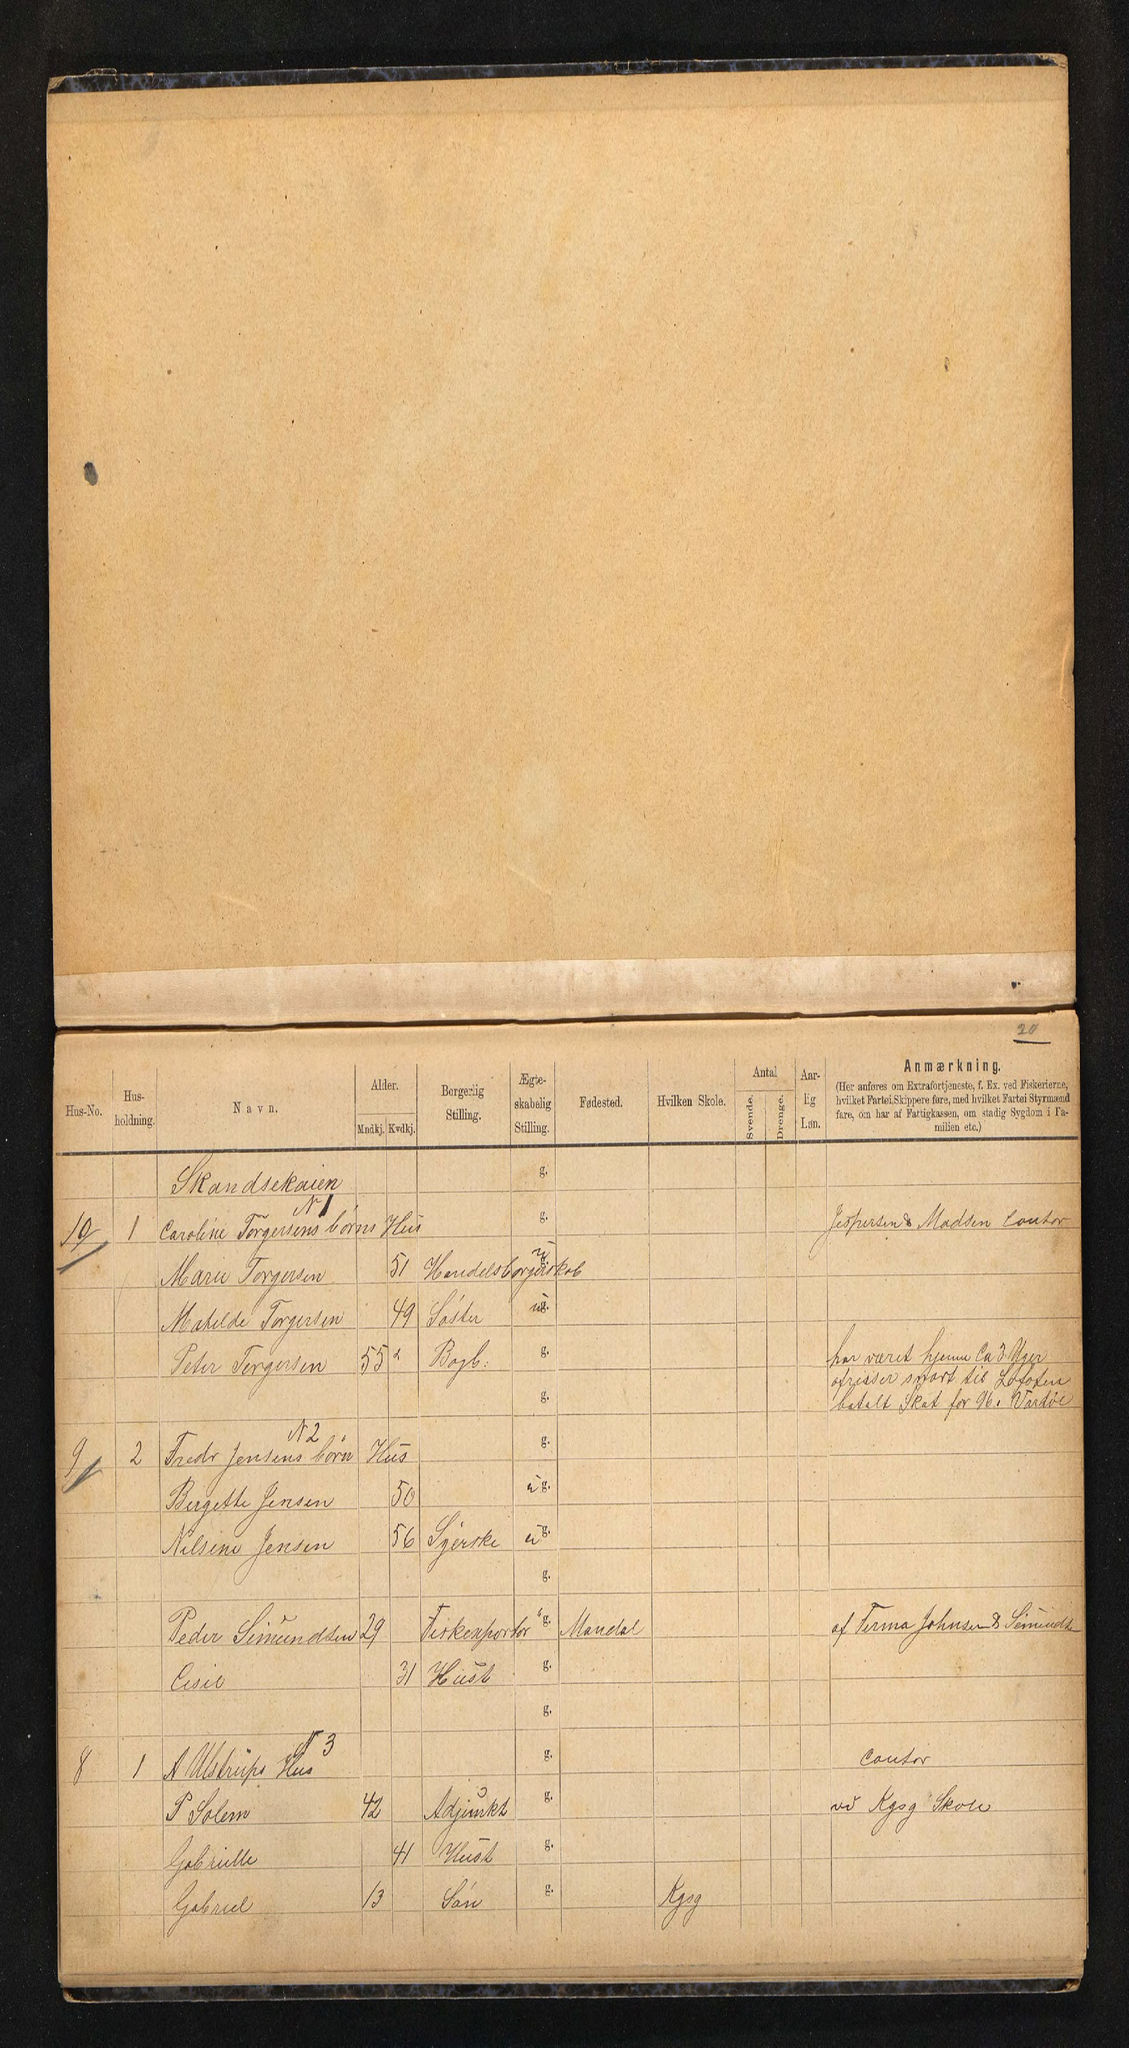 20
Hus-No. Hus-holdning. Navn. Alder. Mndkj. Kvdkj. Borgerlig Stilling. Ægte-skabelig Stilling. Fødested. Hvilken Skole. Antal Svende. Drenge. Aar-lig Løn. Anmærkning.
(Her anføres om Extrafortjeneste, f. Ex. ved Fiskerierne,
hvilket Fartøi Skippere føre, med hvilket Fartøi Styrmænd
fare, om har af Fattigkassen, om stadig Sygdom i Fa-
milien etc.)
Skandsekaien g.
N 1
10 1 Caroline Torgersens børns Hus g. Jespersen & Madsen Contor
Marie Torgersen 51 Handelsborgerskab g.
Mathilde Torgersen 49 Søster ug.
Peter Torgersen 55 Bogh: g. har været hjemme Ca 3 Uger
afreiser snart til Lofoten
g. betalt Skat for 96 i Vardøe
N 2
9 2 Fredr Jensens børn Hus g.
Bergette Jensen 50 u g.
Nilsine Jensen 56 Syerske u g.
g.
Peder Simundsen 29 Fiskexportør g. Mandal af Firma Johnsen & Simunds
Cisil 31 Hust g.
g.
N 3
8 1 A Ulstrups Hus g. Contor
P Solem 42 Adjunkt g. vd Kgsg Skole
Gabrielle 41 Hust g.
Gabriel 13 Søn g. Kgsg